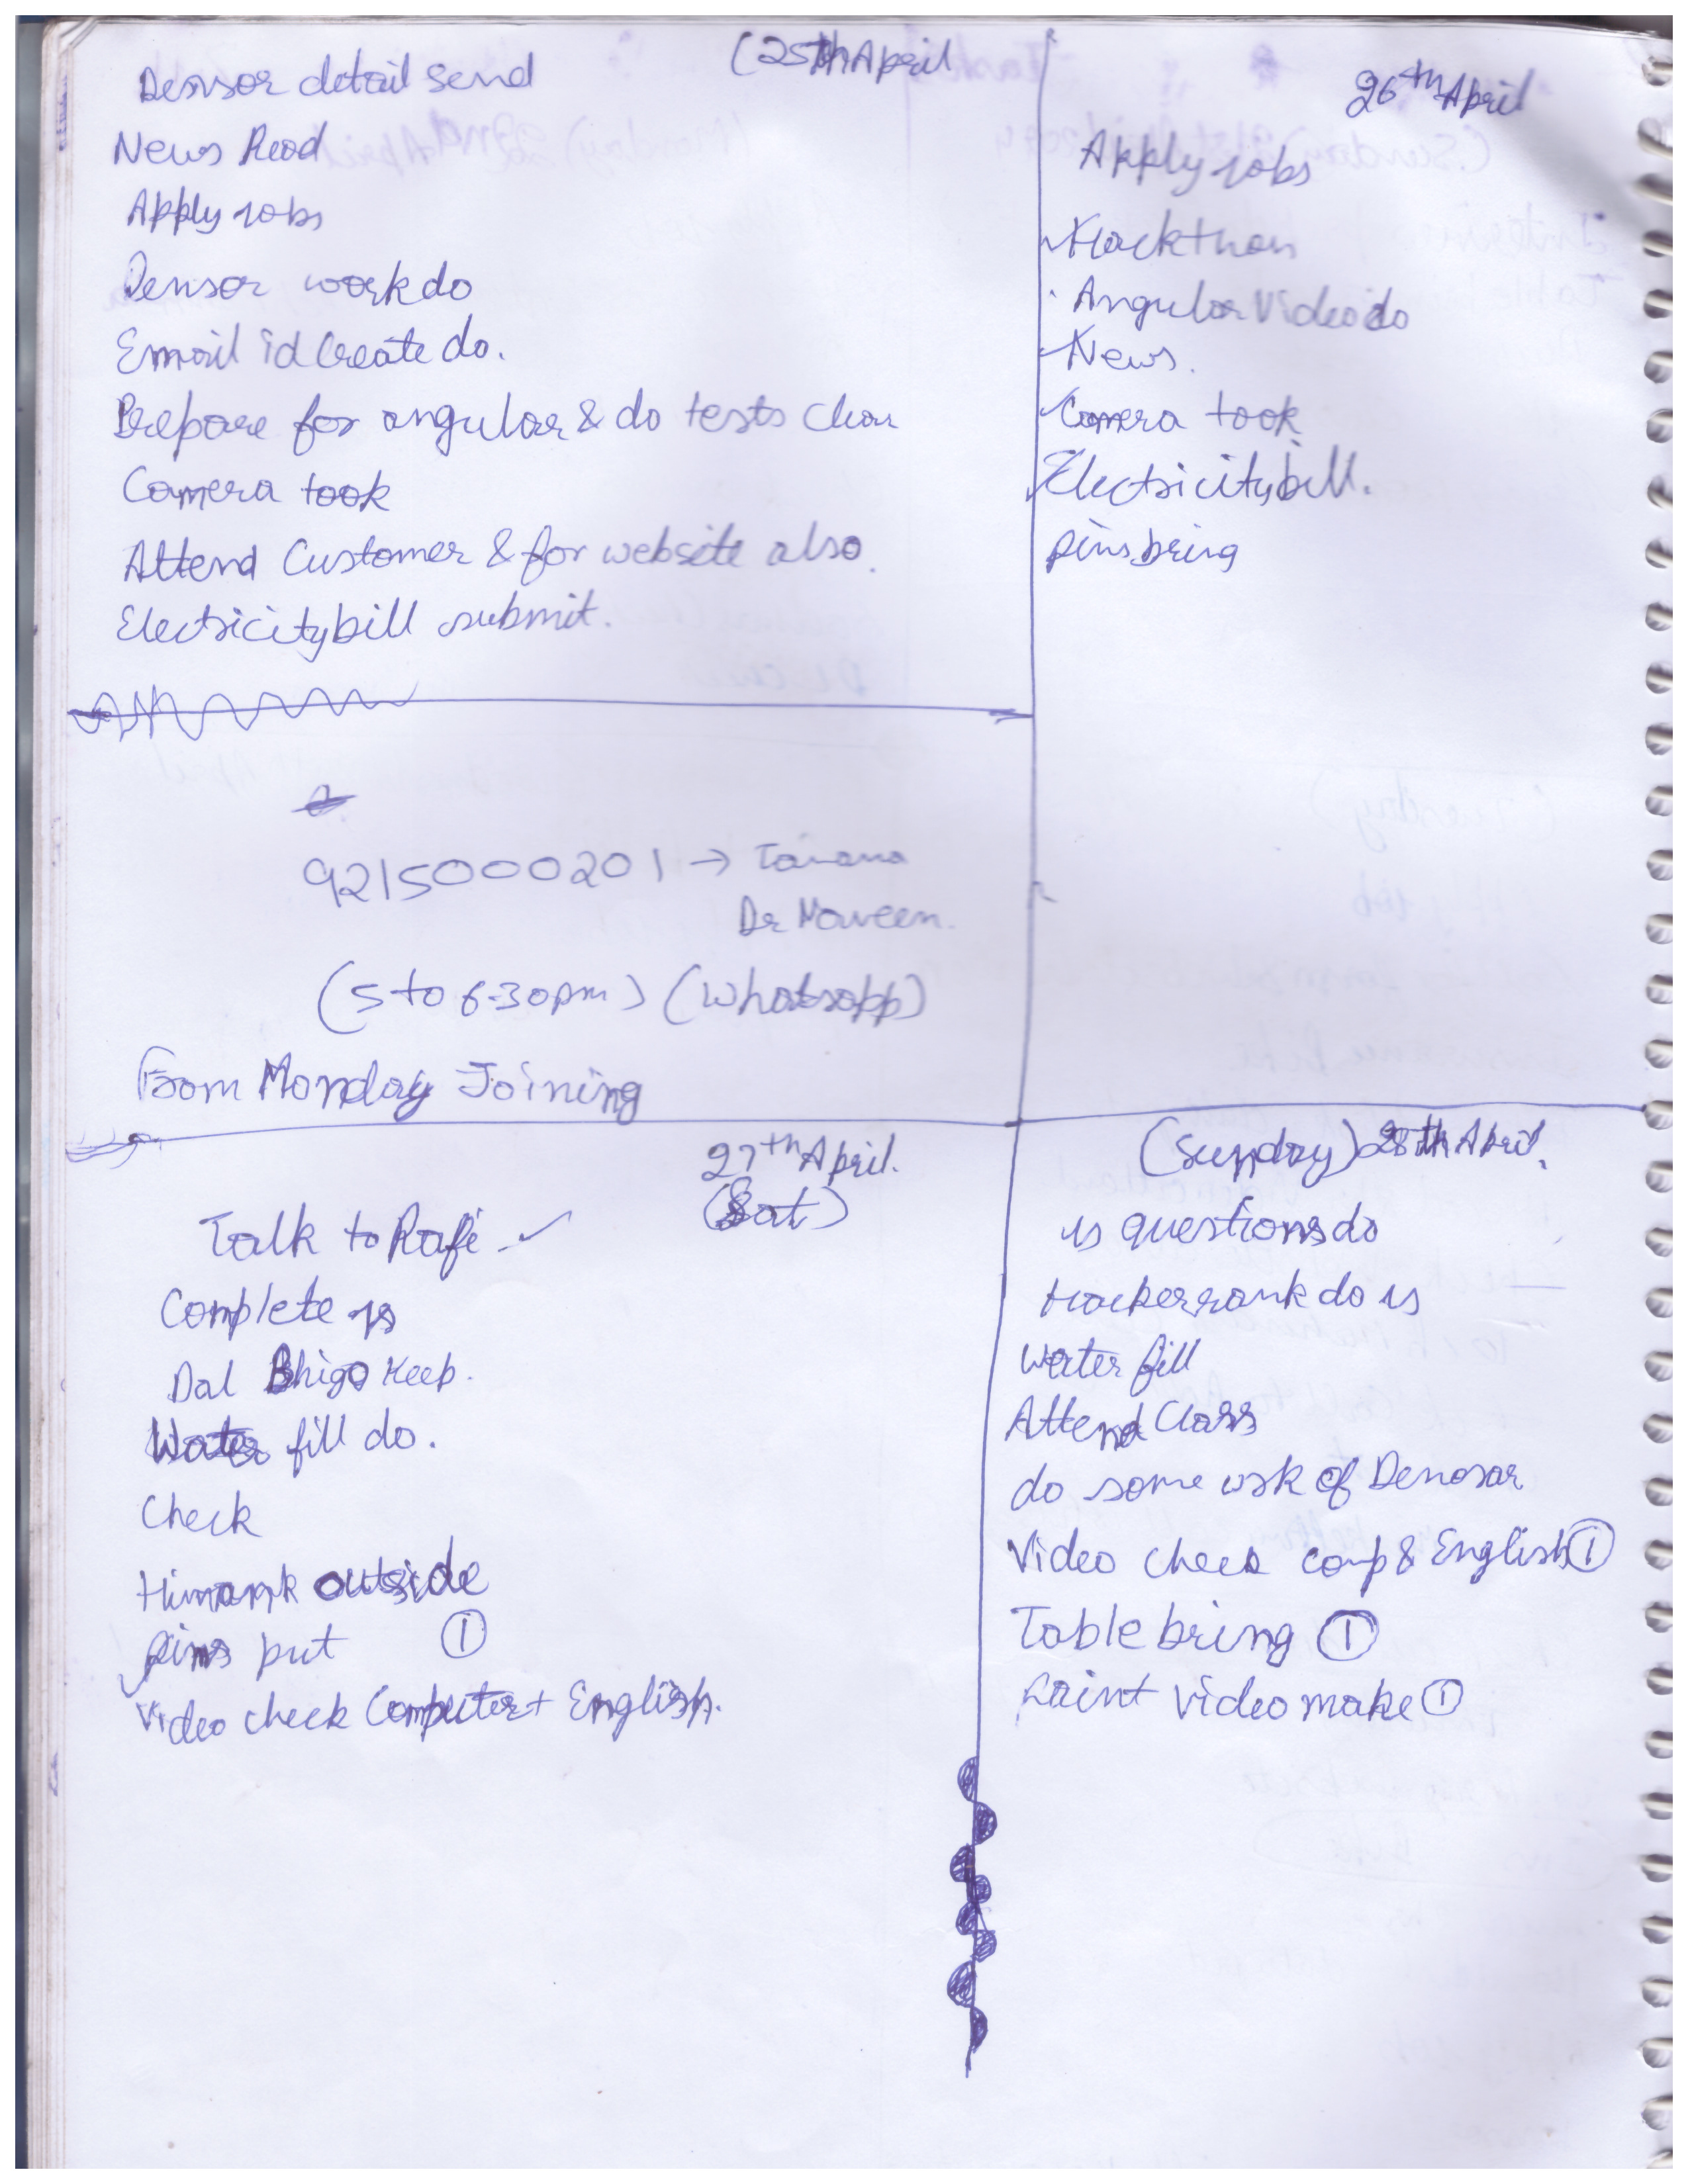 (25th April
Densor detail send
News Read
Apply jobs
Densor work do
Email id create do.
Prepare for angular & do tests clear
Camera took
Attend Customer & for website also.
Electricity bill submit.
9215000201 →
Dr Naveen.
(5 to 6-30pm) (Whatsapp)
From Monday Joining
26th April
Apply jobs
Hackthon
Angular Video do
News.
Camera took
Electricity bill.
pins bring
27th April.
(Sat)
Talk to Rafi
Complete js
Dal Bhigo Keep.
Water fill do.
Check
Himank outside
pins put ①
Video check Computer + English.
(Sunday) 28th April.
js questions do
Hackerrank do js
Water fill
Attend Class
do some wrk of Denosar
Video check comp & English ①
Table bring ①
Paint Video make ①